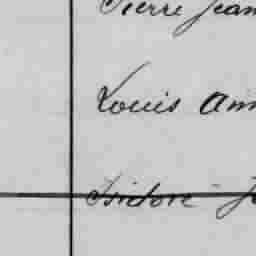 Pierre Jean
Louis Ann
Isidore J